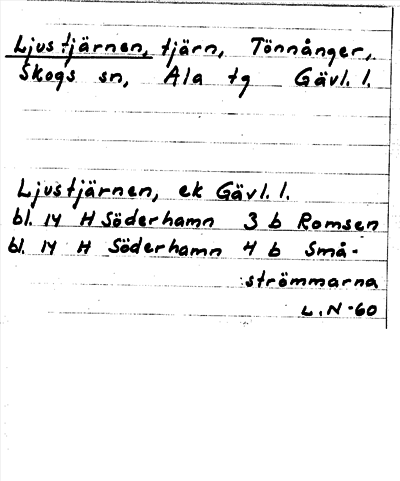 Ljustjärnen, tjärn, Tönnånger,
Skogs sn, Ala tg Gävl. l.
Ljustjärnen, ek Gävl. l.
bl. 14 H Söderhamn 3 b Romsen
bl. 14 H Söderhamn 4 b Små-
strömmarna
L. N-60